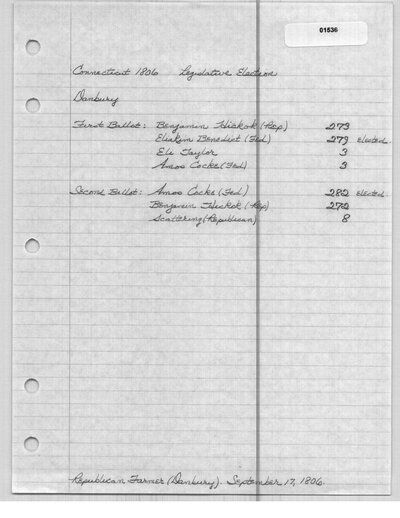 01536
Connecticut 1806 Legislative Election
Danbury
First Ballot: Benjamin Hickok (Rep) 273
Eliakim Benedict (Fed) 279 elected.
Eli Taylor 3
Amos Cocke (Fed) 3
Second Ballot: Amos Cocke (Fed) 282 elected
Benjamin Hickok (Rep) 272
Scattering (Republican) 8
Republican Farmer (Danbury). September 17, 1806.